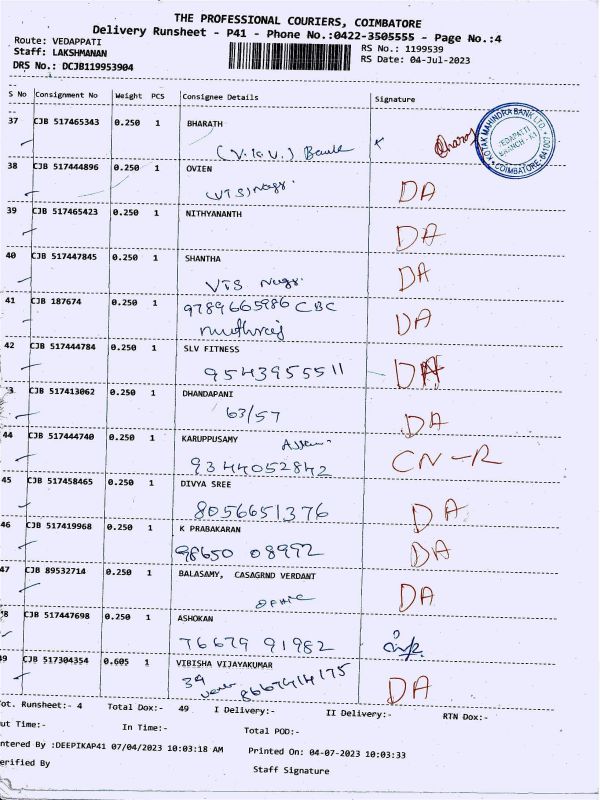 THE PROFESSIONAL COURIERS, COIMBATORE
Delivery Runsheet - P41 - Phone No.:0422-3505555 - Page No.:4
Route: VEDAPPATI
RS No.: 1199539
Staff: LAKSHMANAN
RS Date: 04-Jul-2023
DRS No.: DCJB119953904
S No Consignment No Weight PCS Consignee Details Signature
37 CJB 517465343 0.250 1 BHARATH
KOTAK MAHINDRA BANK LTD.
VEDAPATTI
BRANCH
COIMBATORE 641007
Bank
38 CJB 517444896 0.250 1 OVIEN
(VTS) Nagr. DA
39 CJB 517465423 0.250 1 NITHYANANTH
DA
40 CJB 517447845 0.250 1 SHANTHA
VTS Nagr. DA
41 CJB 187674 0.250 1 9789665986 CBC
muthuraj DA
42 CJB 517444784 0.250 1 SLV FITNESS
9543955511 DA
43 CJB 517413062 0.250 1 DHANDAPANI
63/57 DA
44 CJB 517444740 0.250 1 KARUPPUSAMY
9344052842 CN-R
45 CJB 517458465 0.250 1 DIVYA SREE
8056651376 DA
46 CJB 517419968 0.250 1 K PRABAKARAN
98650 08992 DA
47 CJB 89532714 0.250 1 BALASAMY, CASAGRND VERDANT
office DA
48 CJB 517447698 0.250 1 ASHOKAN
76679 91982
49 CJB 517304354 0.605 1 VIBISHA VIJAYAKUMAR
39 8667414175 DA
Tot. Runsheet:- 4 Total Dox:- 49 I Delivery:- II Delivery:- RTN Dox:-
Out Time:- In Time:- Total POD:-
Entered By :DEEPIKAP41 07/04/2023 10:03:18 AM Printed On: 04-07-2023 10:03:33
Verified By Staff Signature